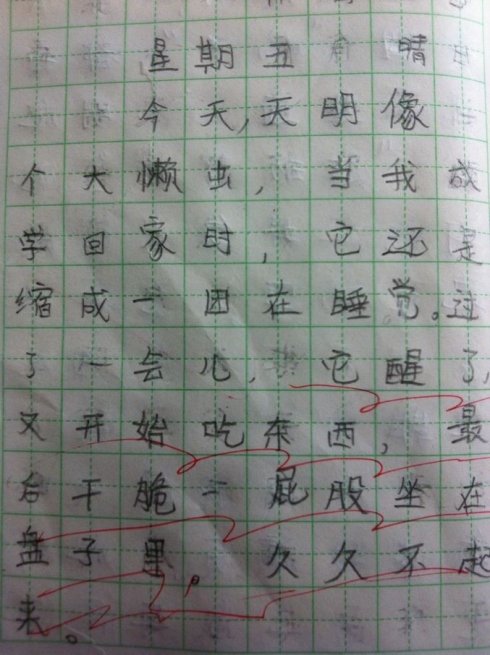 星期五 晴
今天,天明像
个大懒虫,当我放
学回家时,它还是
缩成一团在睡觉。过
了一会儿,它醒了,
又开始吃东西,最
后干脆一屁股坐在
盘子里,久久不起
来。